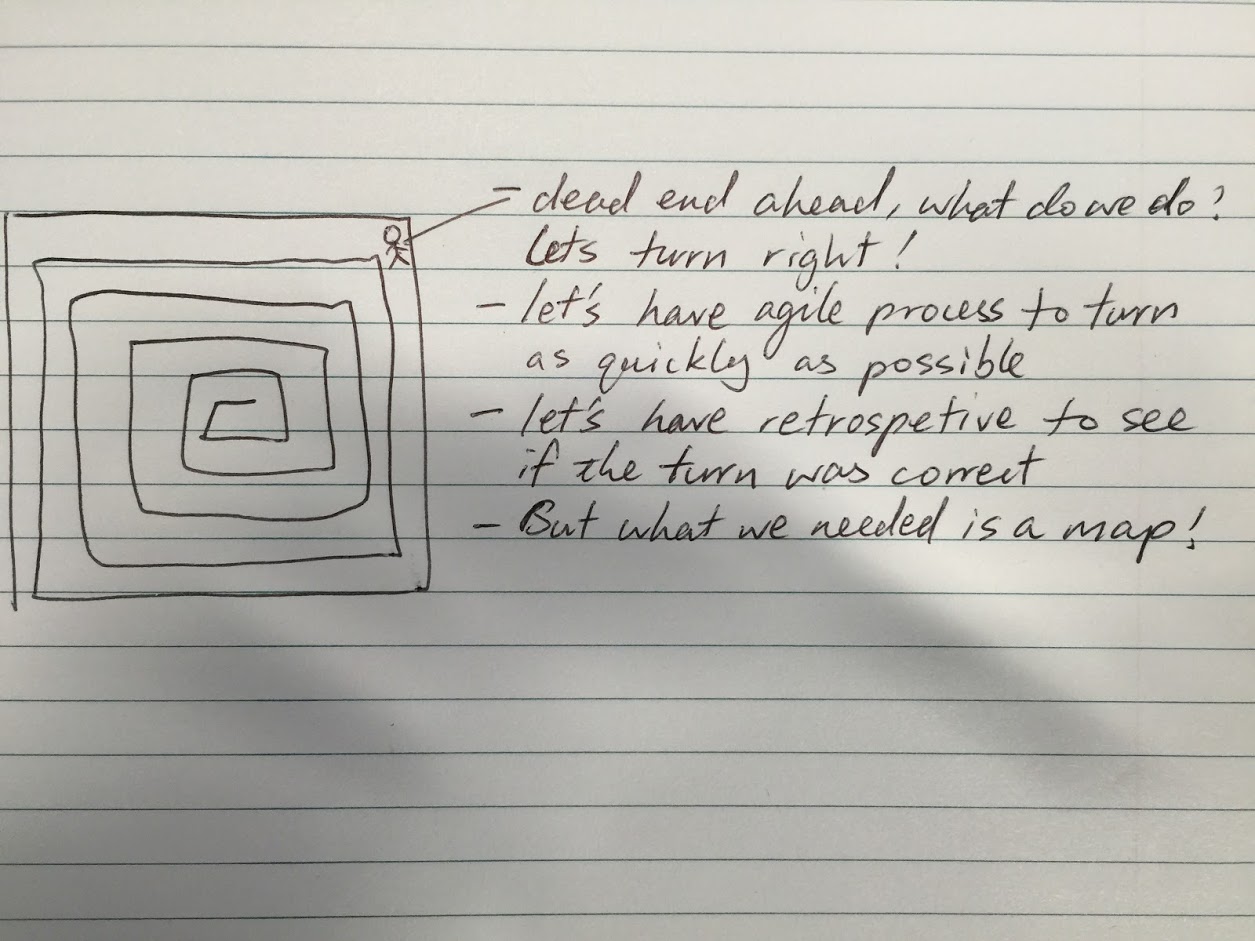 - dead end ahead, what do we do?
Lets turn right!
- let's have agile process to turn
as quickly as possible
- let's have retrospetive to see
if the turn was correct
- But what we needed is a map!